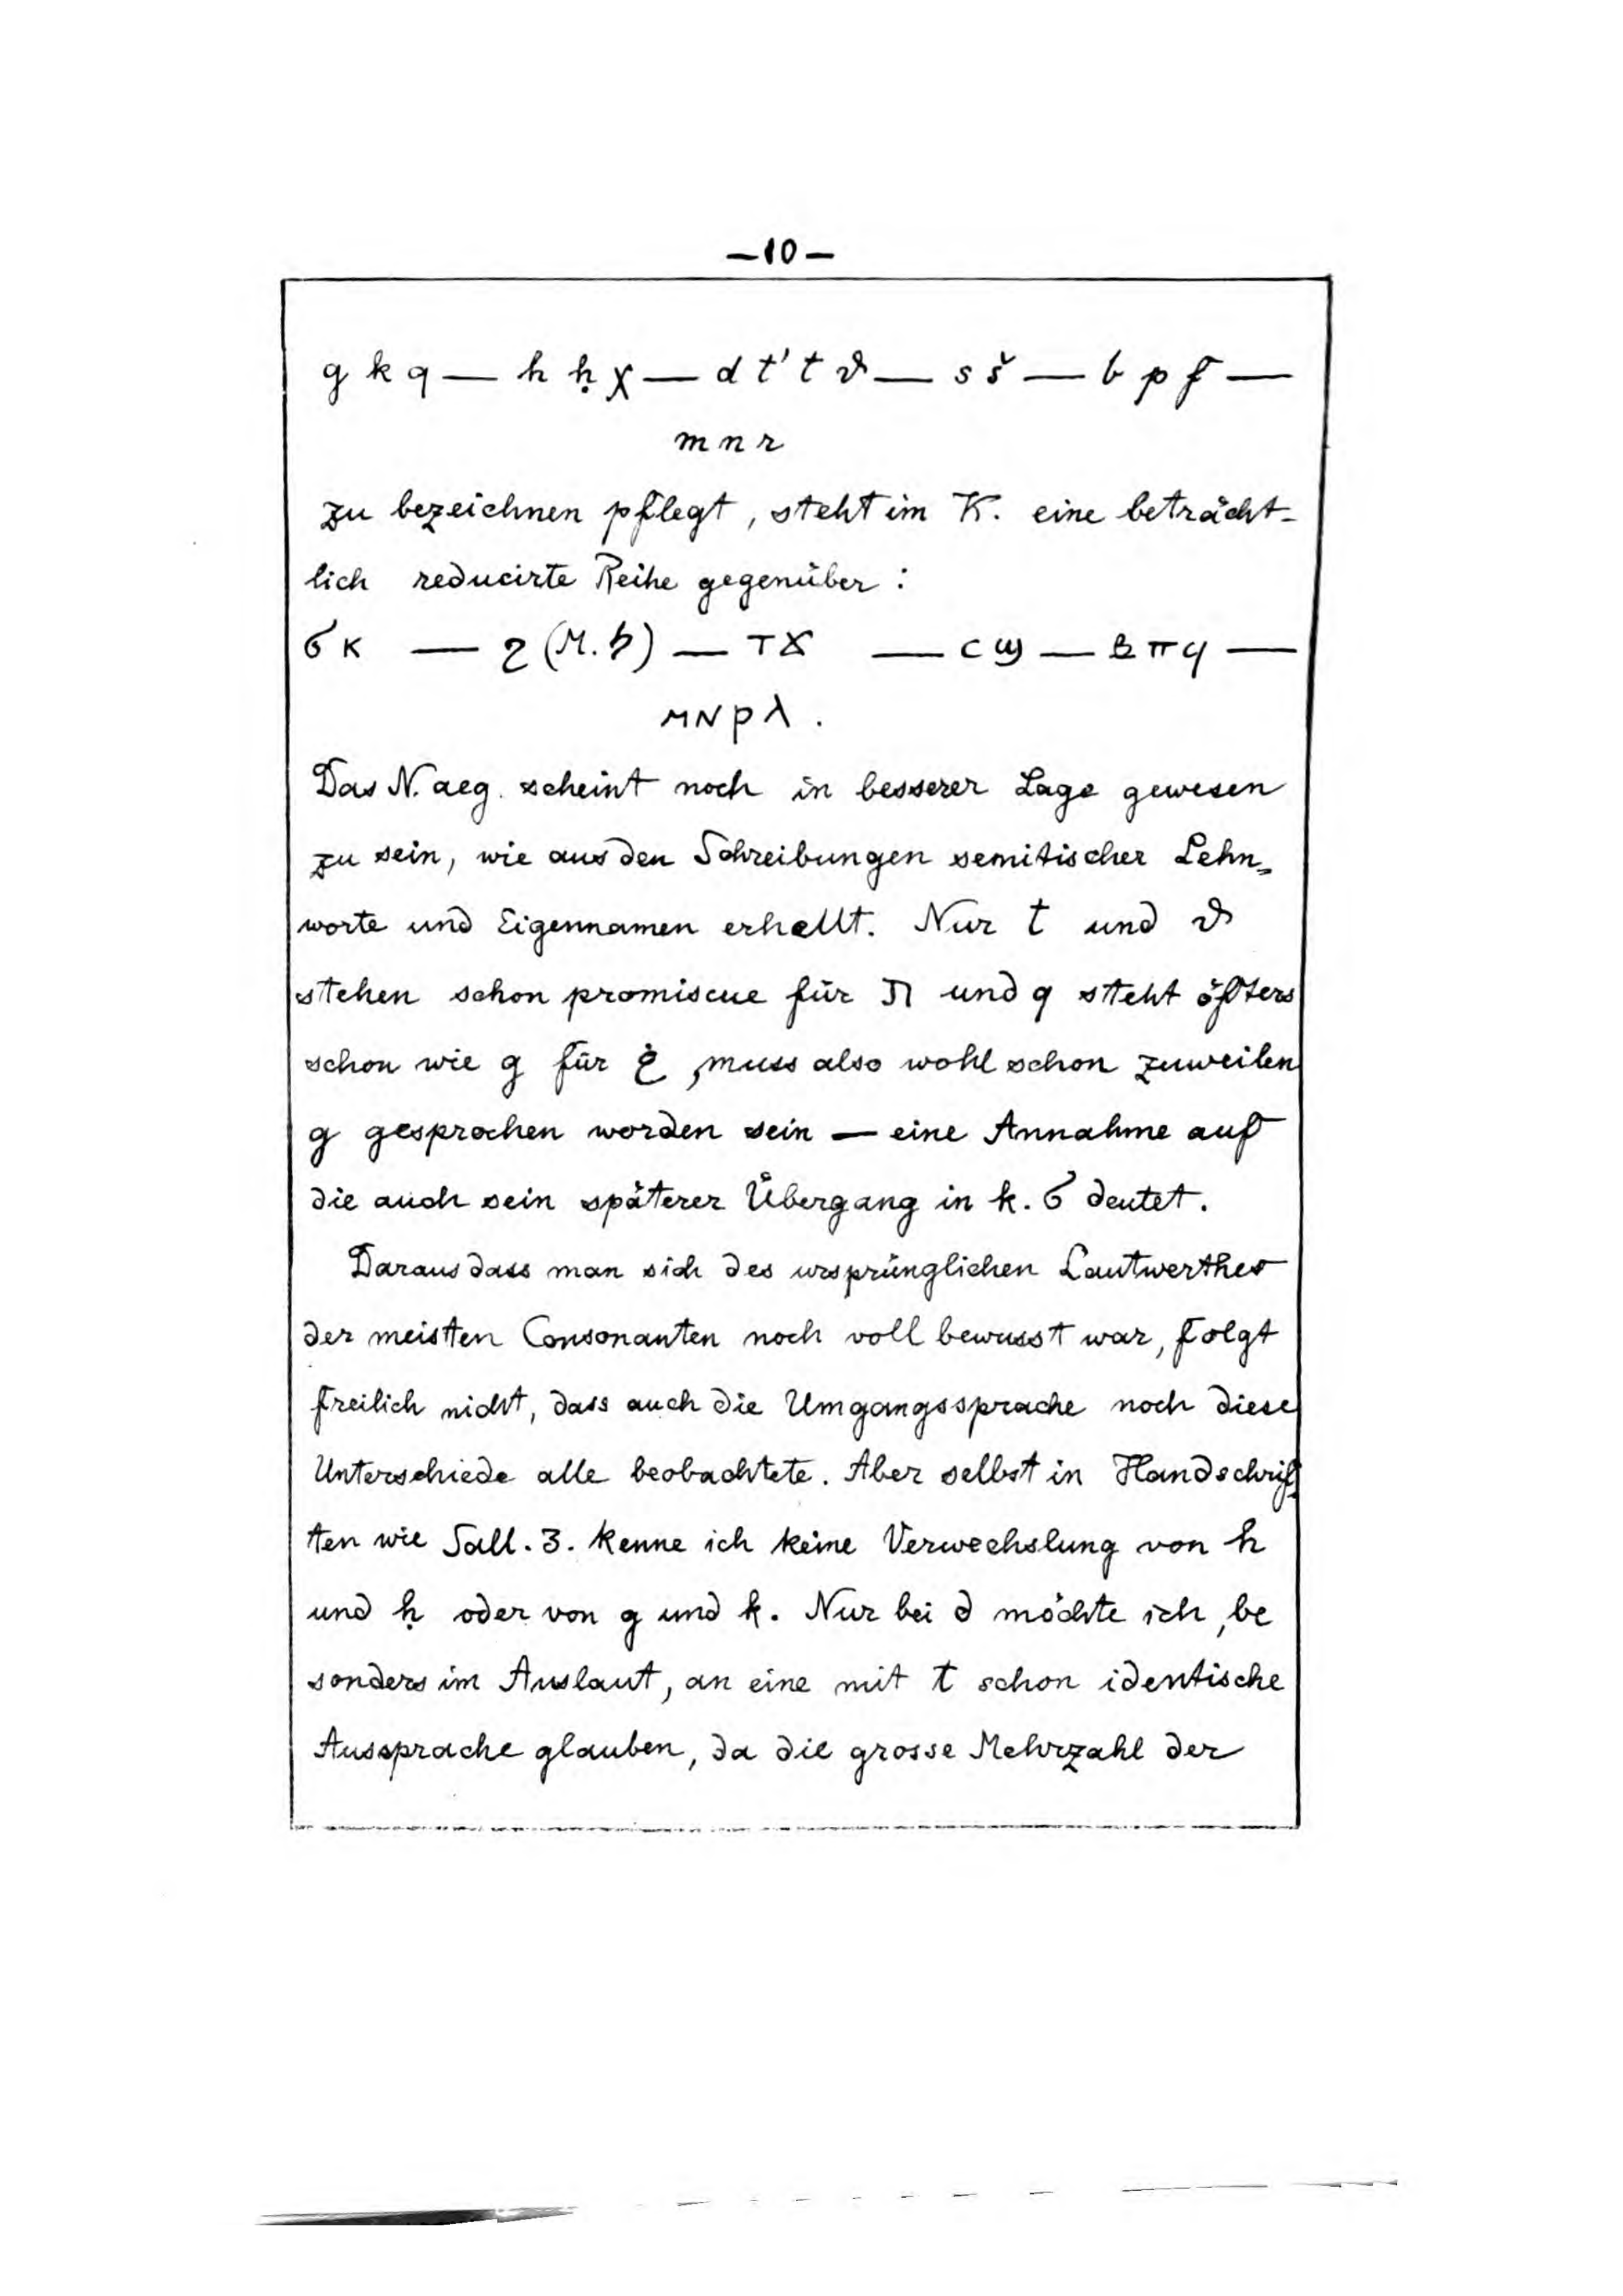 —10—
g k q — h ḥ χ — d t' t ϑ — s š — b p f —
m n r
zu bezeichnen pflegt, steht im K. eine beträcht-
lich reducirte Reihe gegenüber:
ϭ ⲕ — ϩ (M. ϧ) — ⲧ ϫ — ⲥ ϣ — ⲃ ⲡ ϥ —
ⲙ ⲛ ⲣ ⲗ.
Das N. aeg. scheint noch in besserer Lage gewesen
zu sein, wie aus den Schreibungen semitischer Lehn-
worte und Eigennamen erhellt. Nur t und ϑ
stehen schon promiscue für ת und q steht öfters
schon wie g für غ, muss also wohl schon zuweilen
g gesprochen worden sein — eine Annahme auf
die auch sein späterer Übergang in k. ϭ deutet.
Daraus dass man sich des ursprünglichen Lautwerthes
der meisten Consonanten noch voll bewusst war, folgt
freilich nicht, dass auch die Umgangssprache noch diese
Unterschiede alle beobachtete. Aber selbst in Handschrif-
ten wie Sall. 3. kenne ich keine Verwechslung von h
und ḥ oder von g und k. Nur bei d möchte ich, be
sonders im Auslaut, an eine mit t schon identische
Aussprache glauben, da die grosse Mehrzahl der